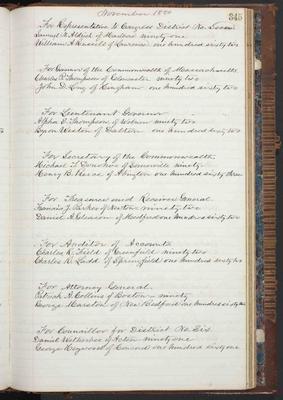 November 1880
345
For Representative to Congress District No. Seven
Samuel N. Aldrich of Marlboro ninety one
William A. Russell of Lawrence one hundred sixty two
For Governor of the Commonwealth of Massachusetts
Charles P. Thompson of Gloucester ninety two
John D. Long of Hingham one hundred sixty two
For Lieutenant Governor
Alpha E. Thompson of Woburn ninety two
Byron Weston of Dalton one hundred sixty two
For Secretary of the Commonwealth
Michael T. Donohoe of Somerville ninety
Henry B. Peirce of Abington one hundred sixty three
For Treasurer and Receiver General
Francis J. Parker of Newton ninety two
Daniel A. Gleason of Medford one hundred sixty two
For Auditor of Accounts
Charles R. Field of Greenfield ninety two
Charles R. Ladd of Springfield one hundred sixty two
For Attorney General
Patrick A. Collins of Boston ninety
George Marston of New Bedford one hundred sixty two
For Councillor for District No. Six
Daniel Wetherbee of Acton ninety one
George Heywood of Concord one hundred sixty one